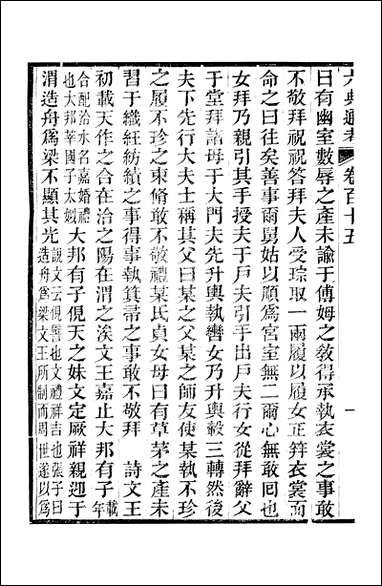 六典通考 卷百十五 一
曰有幽室數辱之產未諭于傅姆之敎得承執衣裳之事敢
不敬拜祝祝答拜夫人受琮取一兩履以履女正笄衣裳而
命之曰往矣善事爾舅姑以順爲宮室無二爾心無敢囘也
女拜乃親引其手授夫于戶夫引手出戶夫行女從拜辭父
于堂拜諸母于大門夫先升輿執轡女乃升輿轂三轉然後
夫下先行大夫士稱其父曰某之父某之師友使某執不珍
之履不珍之束脩敢不敬禮某氏貞女母曰有草茅之產未
習于織紝紡績之事得奉執箕帚之事敢不敬拜 詩文王
初載天作之合在洽之陽在渭之涘文王嘉止大邦有子載年
合配洽水名嘉婚禮也大邦莘國子太姒大邦有子俔天之妹文定厥祥親迎于
渭造舟爲梁不顯其光說文云俔譬也文禮祥吉也張子曰造舟爲梁文王所制而周世遂以爲